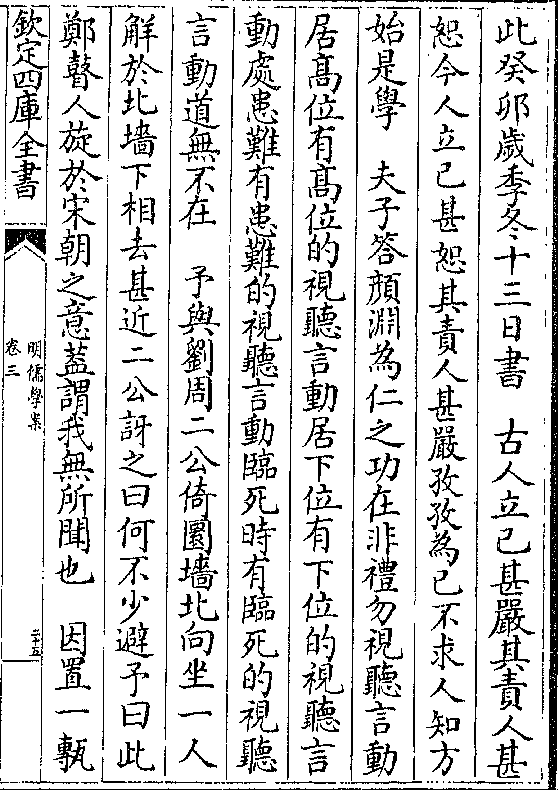 此癸卯歲季冬十三日書　古人立已甚嚴其責人甚
恕今人立已甚恕其責人甚嚴孜孜為已不求人知方
始是學　夫子答顔淵為仁之功在非禮勿視聽言動
居髙位有髙位的視聽言動居下位有下位的視聽言
動處患難有患難的視聽言動臨死時有臨死的視聽
言動道無不在　予與劉周二公倚圜墻北向坐一人
解於北墻下相去甚近二公訝之曰何不少避予曰此
鄭瞽人旋於宋朝之意葢謂我無所聞也　因置一甎
欽定四庫全書
明儒學案
卷三
二十五